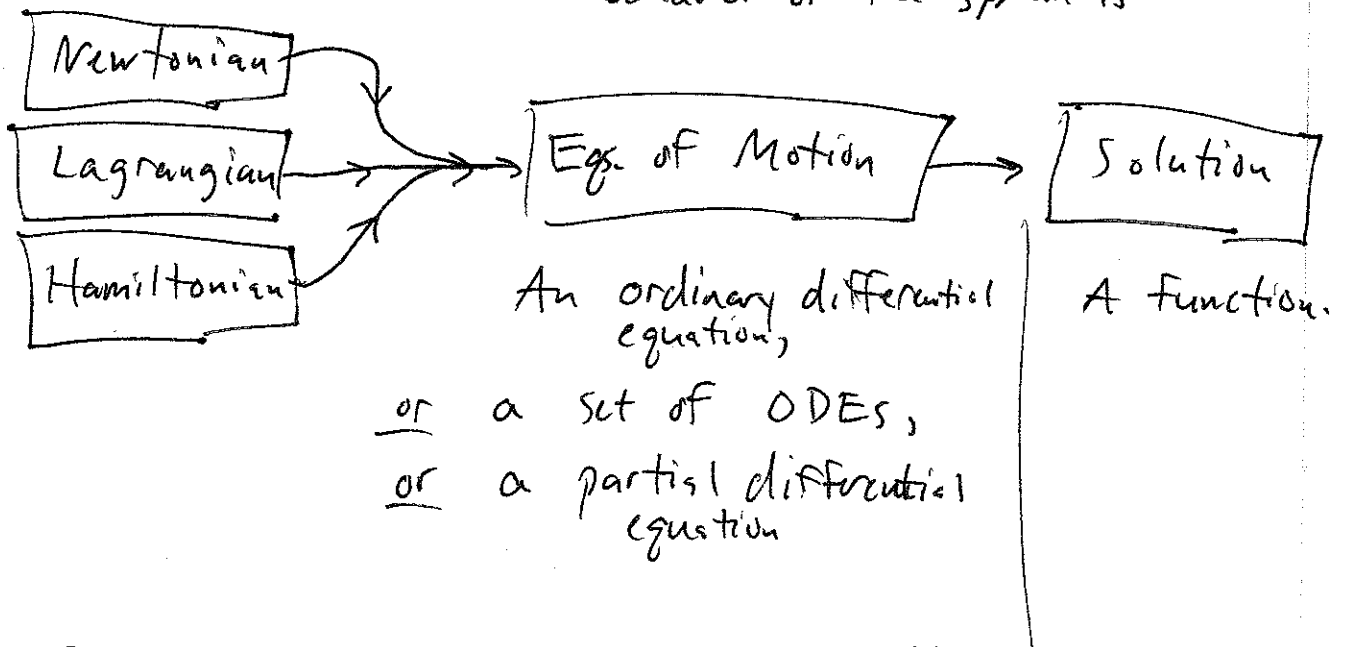 Newtonian
Lagrangian
Hamiltonian
Eqs. of Motion
Solution
An ordinary differential
equation,
or a set of ODEs,
or a partial differential
equation
A function.